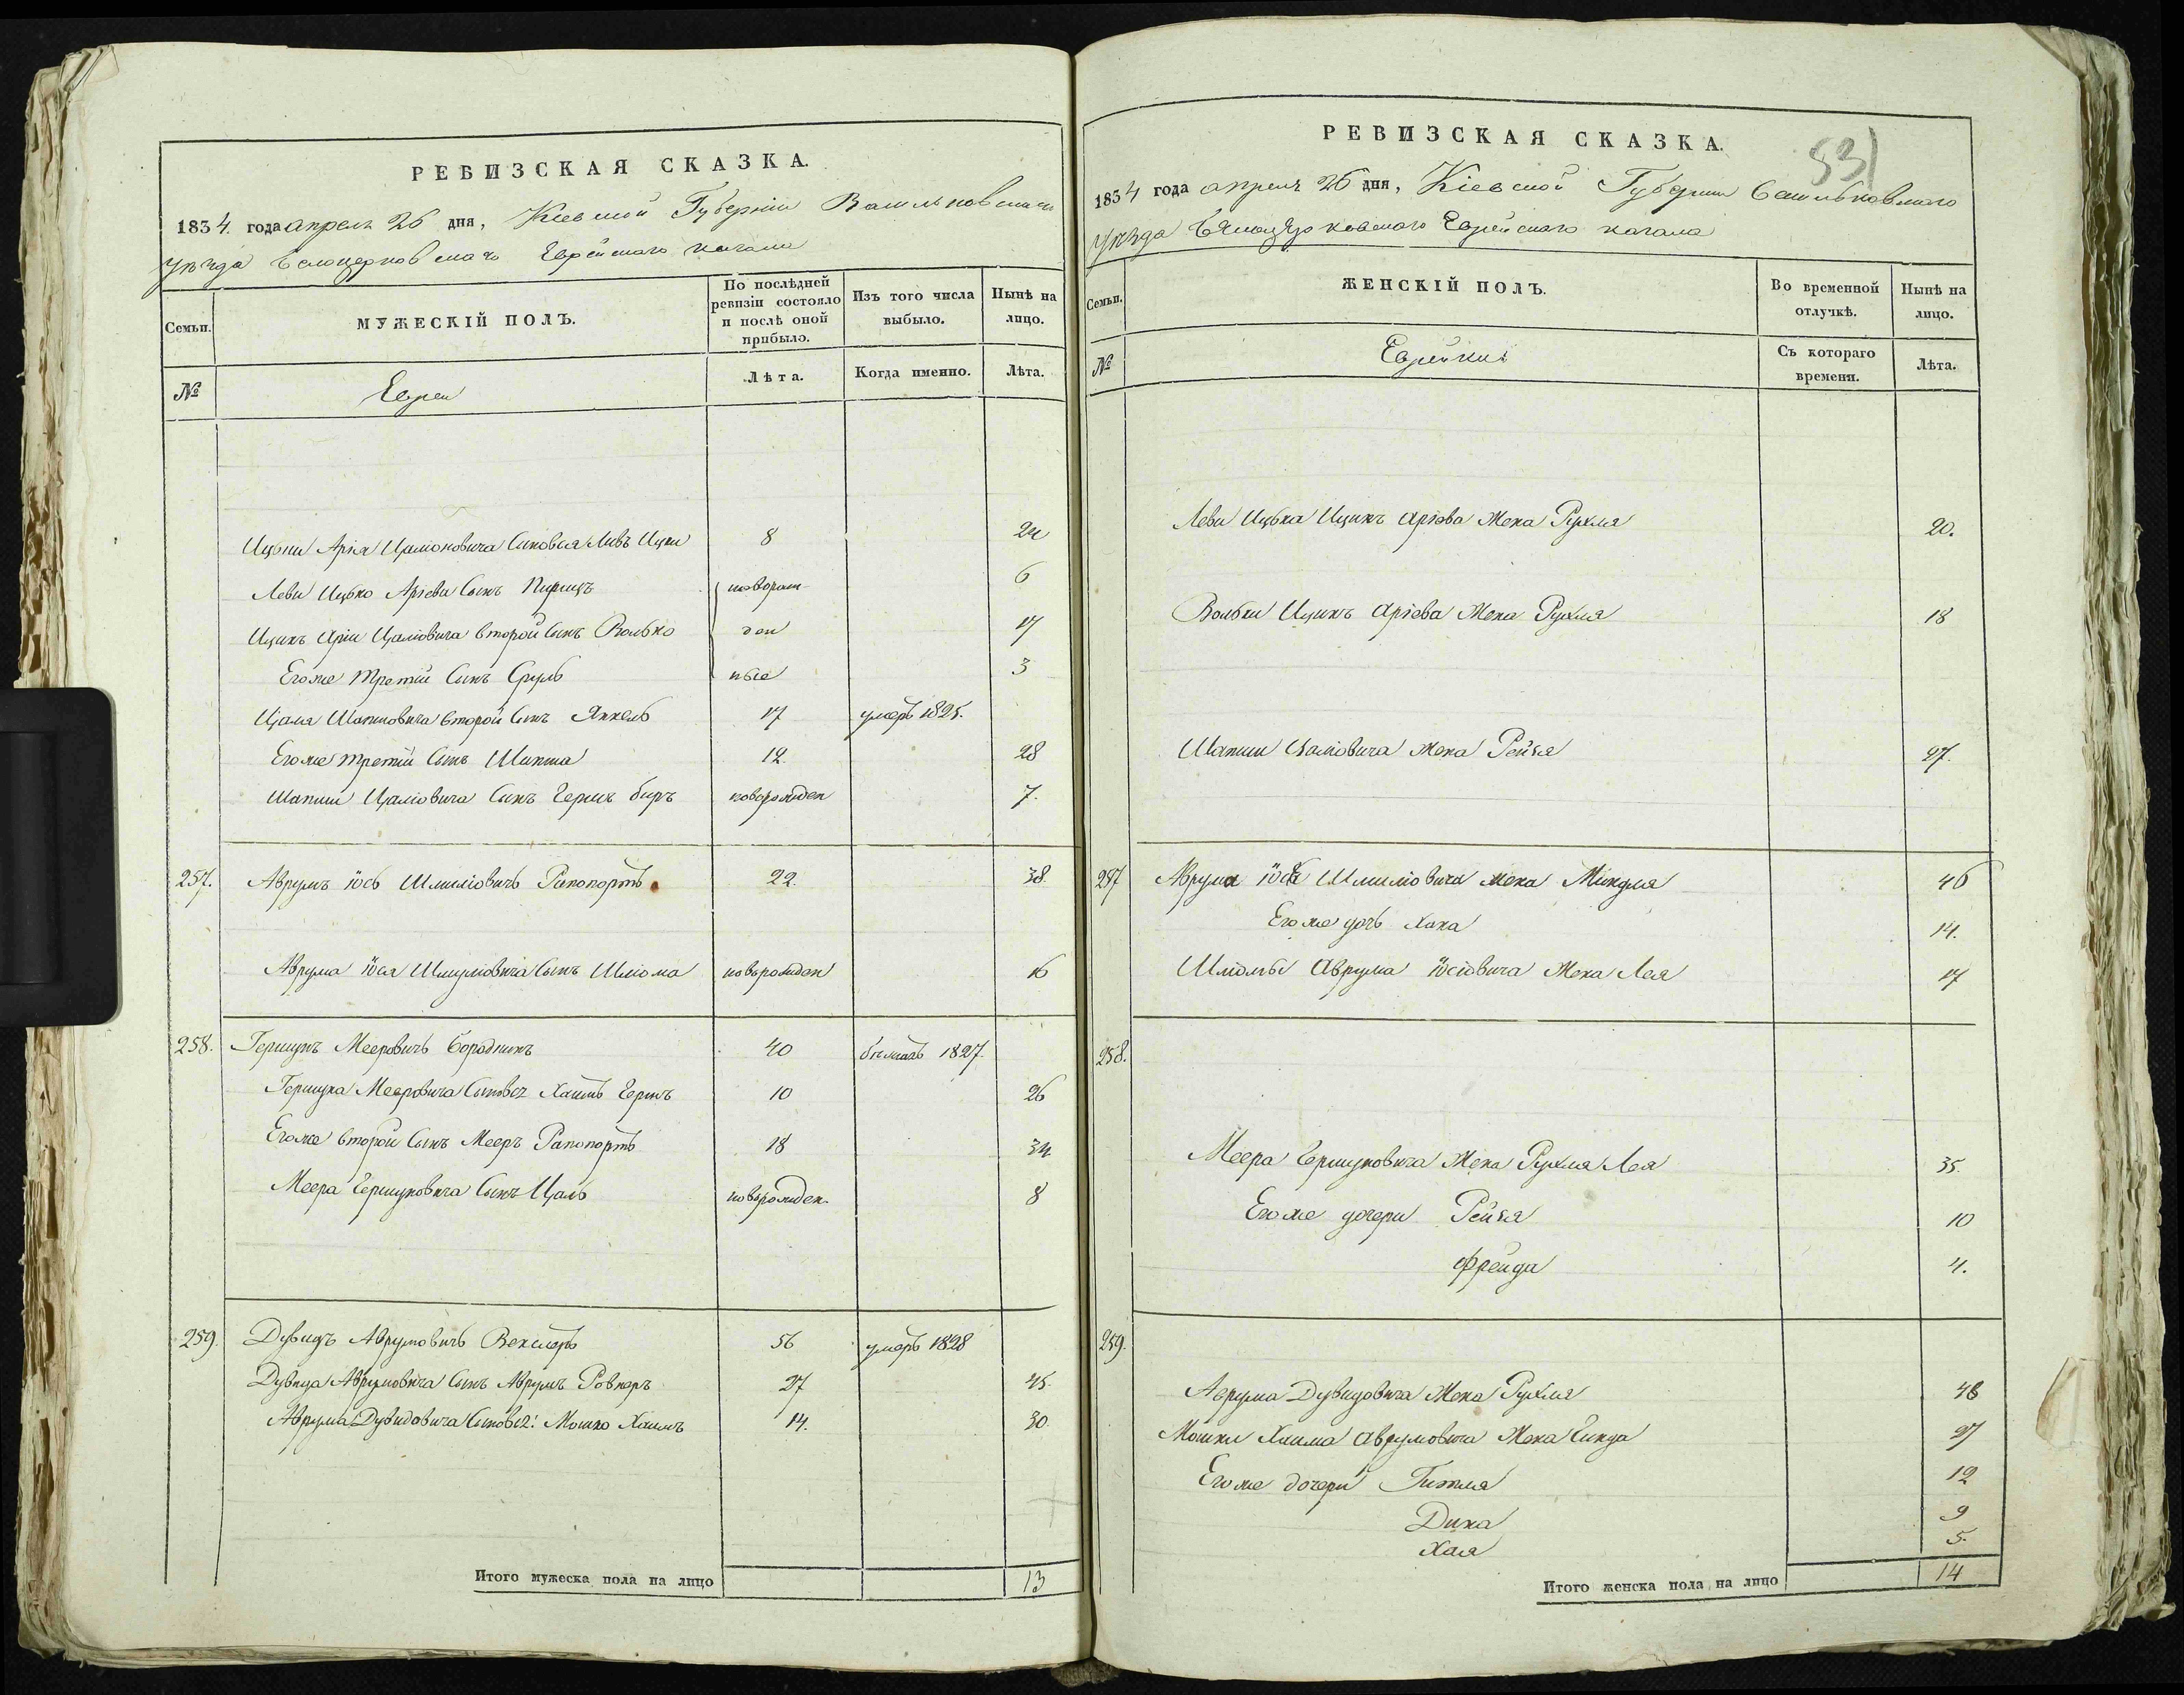 РЕВИЗСКАЯ СКАЗКА.
1834. года апреля 26 дня, Кіевской Губерніи Васильковскаго
уѣзда Белоцерковскаго Еврейскаго кагала
Семьи.
МУЖЕСКІЙ ПОЛЪ.
По послѣдней
ревизіи состояло
и послѣ оной
прибыло.
Изъ того числа
выбыло.
Нынѣ на
лицо.
№
Евреи
Лѣта.
Когда именно.
Лѣта.
Ицки Арія Цаліоновича Сыновья Левъ Ицко 8 24
Леви Ицько Аріева Сынъ Пирицъ новорож- 6
Ицикъ Аріи Цаліовича второй Сынъ Волько ден 17
Егоже третій Сынъ Сруль ные 3
Цаля Шапшовича второй Сынъ Янкель 17 умеръ 1825.
Егоже третій Сынъ Шапша 12. 28
Шапши Цаліовича Сынъ Гершъ беръ новорожден 7.
257. Аврумъ Іось Шмиліовичъ Рапопортъ 22. 38.
Аврума Іося Шмуліовича Сынъ Шліома новорожден 16
258. Гершунъ Мееровичъ Бородникъ 40 бежалъ 1827.
Гершуна Мееровича Сыновья Хаимъ Гершъ 10 26
Егоже второй Сынъ Мееръ Рапопортъ 18 34
Меера Гершуновича Сынъ Цаль новорожден. 8
259. Дувидъ Аврумовичъ Векслеръ 56 умеръ 1828
Дувида Аврумовича Сынъ Аврумъ Ровнеръ 27 45.
Аврума Дувидовича Сыновья: Мошко Хаимъ 14. 30.
Итого мужеска пола на лицо 13
РЕВИЗСКАЯ СКАЗКА.
531
1834 года апреля 26 дня, Кіевской Губерніи Васильковскаго
уѣзда Бѣлоцерковскаго Еврейскаго кагала
Семьи.
ЖЕНСКІЙ ПОЛЪ.
Во временной
отлучкѣ.
Нынѣ на
лицо.
№
Еврейки
Съ котораго
времени.
Лѣта.
Леви Ицька Ицикъ Аріева Жена Рухля 20.
Вольки Ицикъ Аріева Жена Рухля 18
Шапши Цаліовича Жена Рейзя 27.
257 Аврума Іося Шмиліовича Жена Миндля 46
Егоже дочь Хана 14.
Шліомы Аврума Іосіовича Жена Лея 17
258.
Меера Гершуновича Жена Рухля Лея 35.
Егоже дочери Рейзя 10
Фрейда 4.
259.
Аврума Дувидовича Жена Рухля 48
Мошки Хаима Аврумовича Жена Гинда 27
Егоже дочери Гитля 12
Дина 9
Хая 5.
Итого женска пола на лицо 14